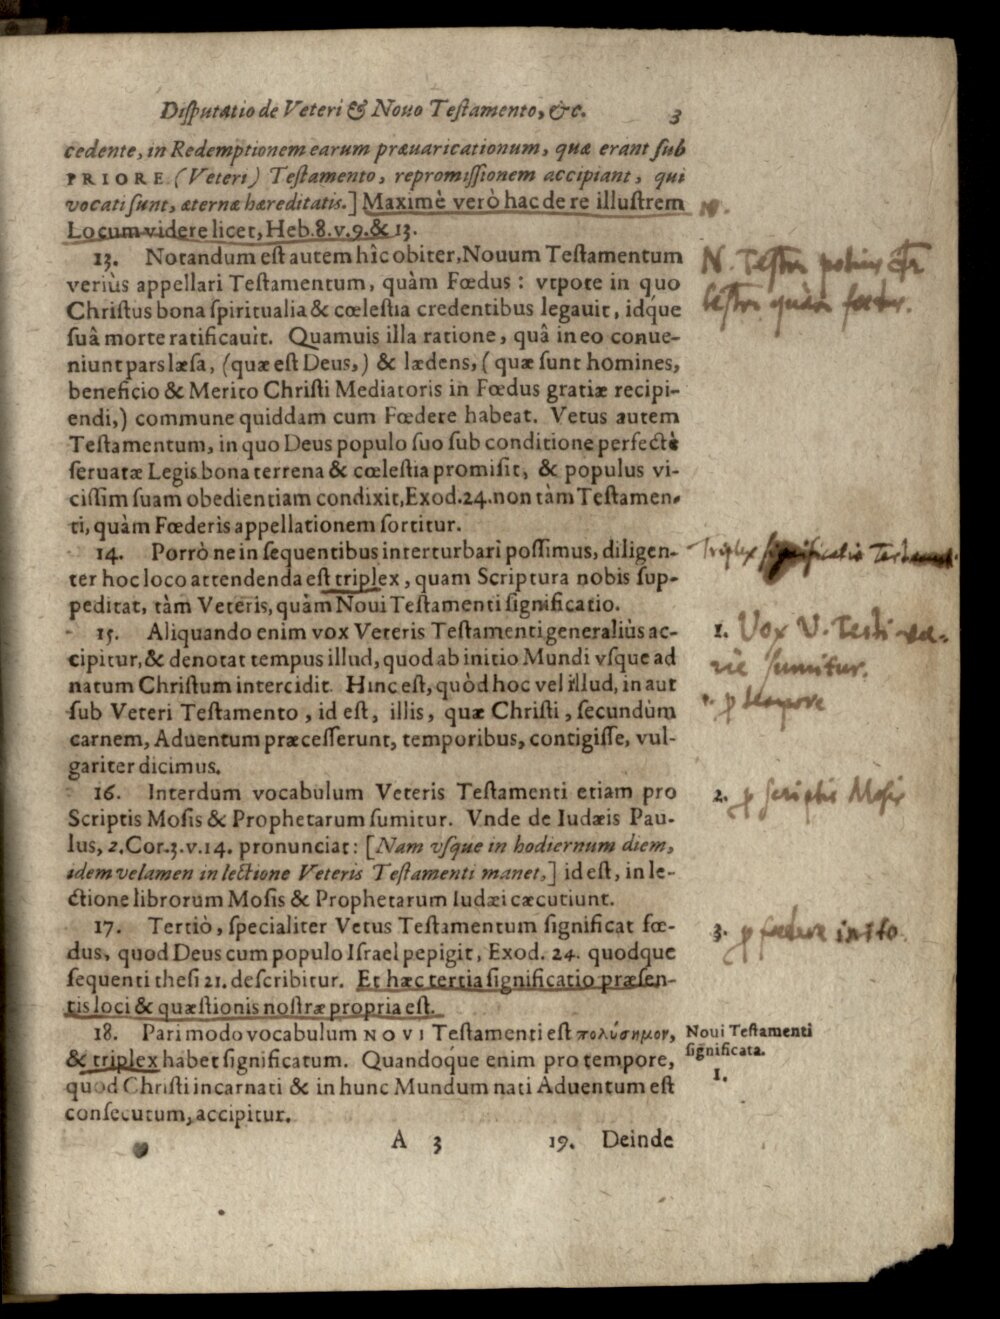 Disputatio de Veteri & Nouo Testamento, &c. 3
cedente, in Redemptionem earum præuaricationum, quæ erant sub
PRIORE (Veteri) Testamento, repromissionem accipiant, qui
vocati sunt, æternæ hæreditatis.] Maximè verò hac de re illustrem
Locum videre licet, Heb. 8. v. 9. & 13.
13. Notandum est autem hîc obiter, Nouum Testamentum
veriùs appellari Testamentum, quàm Fœdus: vtpote in quo
Christus bona spiritualia & cœlestia credentibus legauit, idq́ue
suâ morte ratificauit. Quamuis illa ratione, quâ in eo conue-
niunt pars læsa, (quæ est Deus,) & lædens, (quæ sunt homines,
beneficio & Merito Christi Mediatoris in Fœdus gratiæ recipi-
endi,) commune quiddam cum Fœdere habeat. Vetus autem
Testamentum, in quo Deus populo suo sub conditione perfectè
seruatæ Legis bona terrena & cœlestia promisit, & populus vi-
cissim suam obedientiam condixit, Exod. 24. non tàm Testamen-
ti, quàm Fœderis appellationem sortitur.
N. Testm potius
Testm quàm
14. Porrò ne in sequentibus interturbari possimus, diligen-
ter hoc loco attendenda est triplex, quam Scriptura nobis sup-
peditat, tàm Veteris, quàm Noui Testamenti significatio.
Triplex significatio
15. Aliquando enim vox Veteris Testamenti generaliùs ac-
cipitur, & denotat tempus illud, quod ab initio Mundi vsque ad
natum Christum intercidit. Hinc est, quòd hoc vel illud, in aut
sub Veteri Testamento, id est, illis, quæ Christi, secundùm
carnem, Aduentum præcesserunt, temporibus, contigisse, vul-
gariter dicimus.
1. Vox V. Testi va-
riè sumitur.
p tempore
16. Interdum vocabulum Veteris Testamenti etiam pro
Scriptis Mosis & Prophetarum sumitur. Vnde de Iudæis Pau-
lus, 2. Cor. 3. v. 14. pronunciat: [Nam vsque in hodiernum diem,
idem velamen in lectione Veteris Testamenti manet,] id est, in le-
ctione librorum Mosis & Prophetarum Iudæi cæcutiunt.
2. p scriptis Mosis
17. Tertiò, specialiter Vetus Testamentum significat fœ-
dus, quod Deus cum populo Israel pepigit, Exod. 24. quodque
sequenti thesi 21. describitur. Et hæc tertia significatio præsen-
tis loci & quæstionis nostræ propria est.
3. p fœdere inito
18. Pari modo vocabulum NOVI Testamenti est πολύσημον,
& triplex habet significatum. Quandoq́ue enim pro tempore,
quod Christi incarnati & in hunc Mundum nati Aduentum est
consecutum, accipitur.
Noui Testamenti
significata.
1.
A 3 19. Deinde